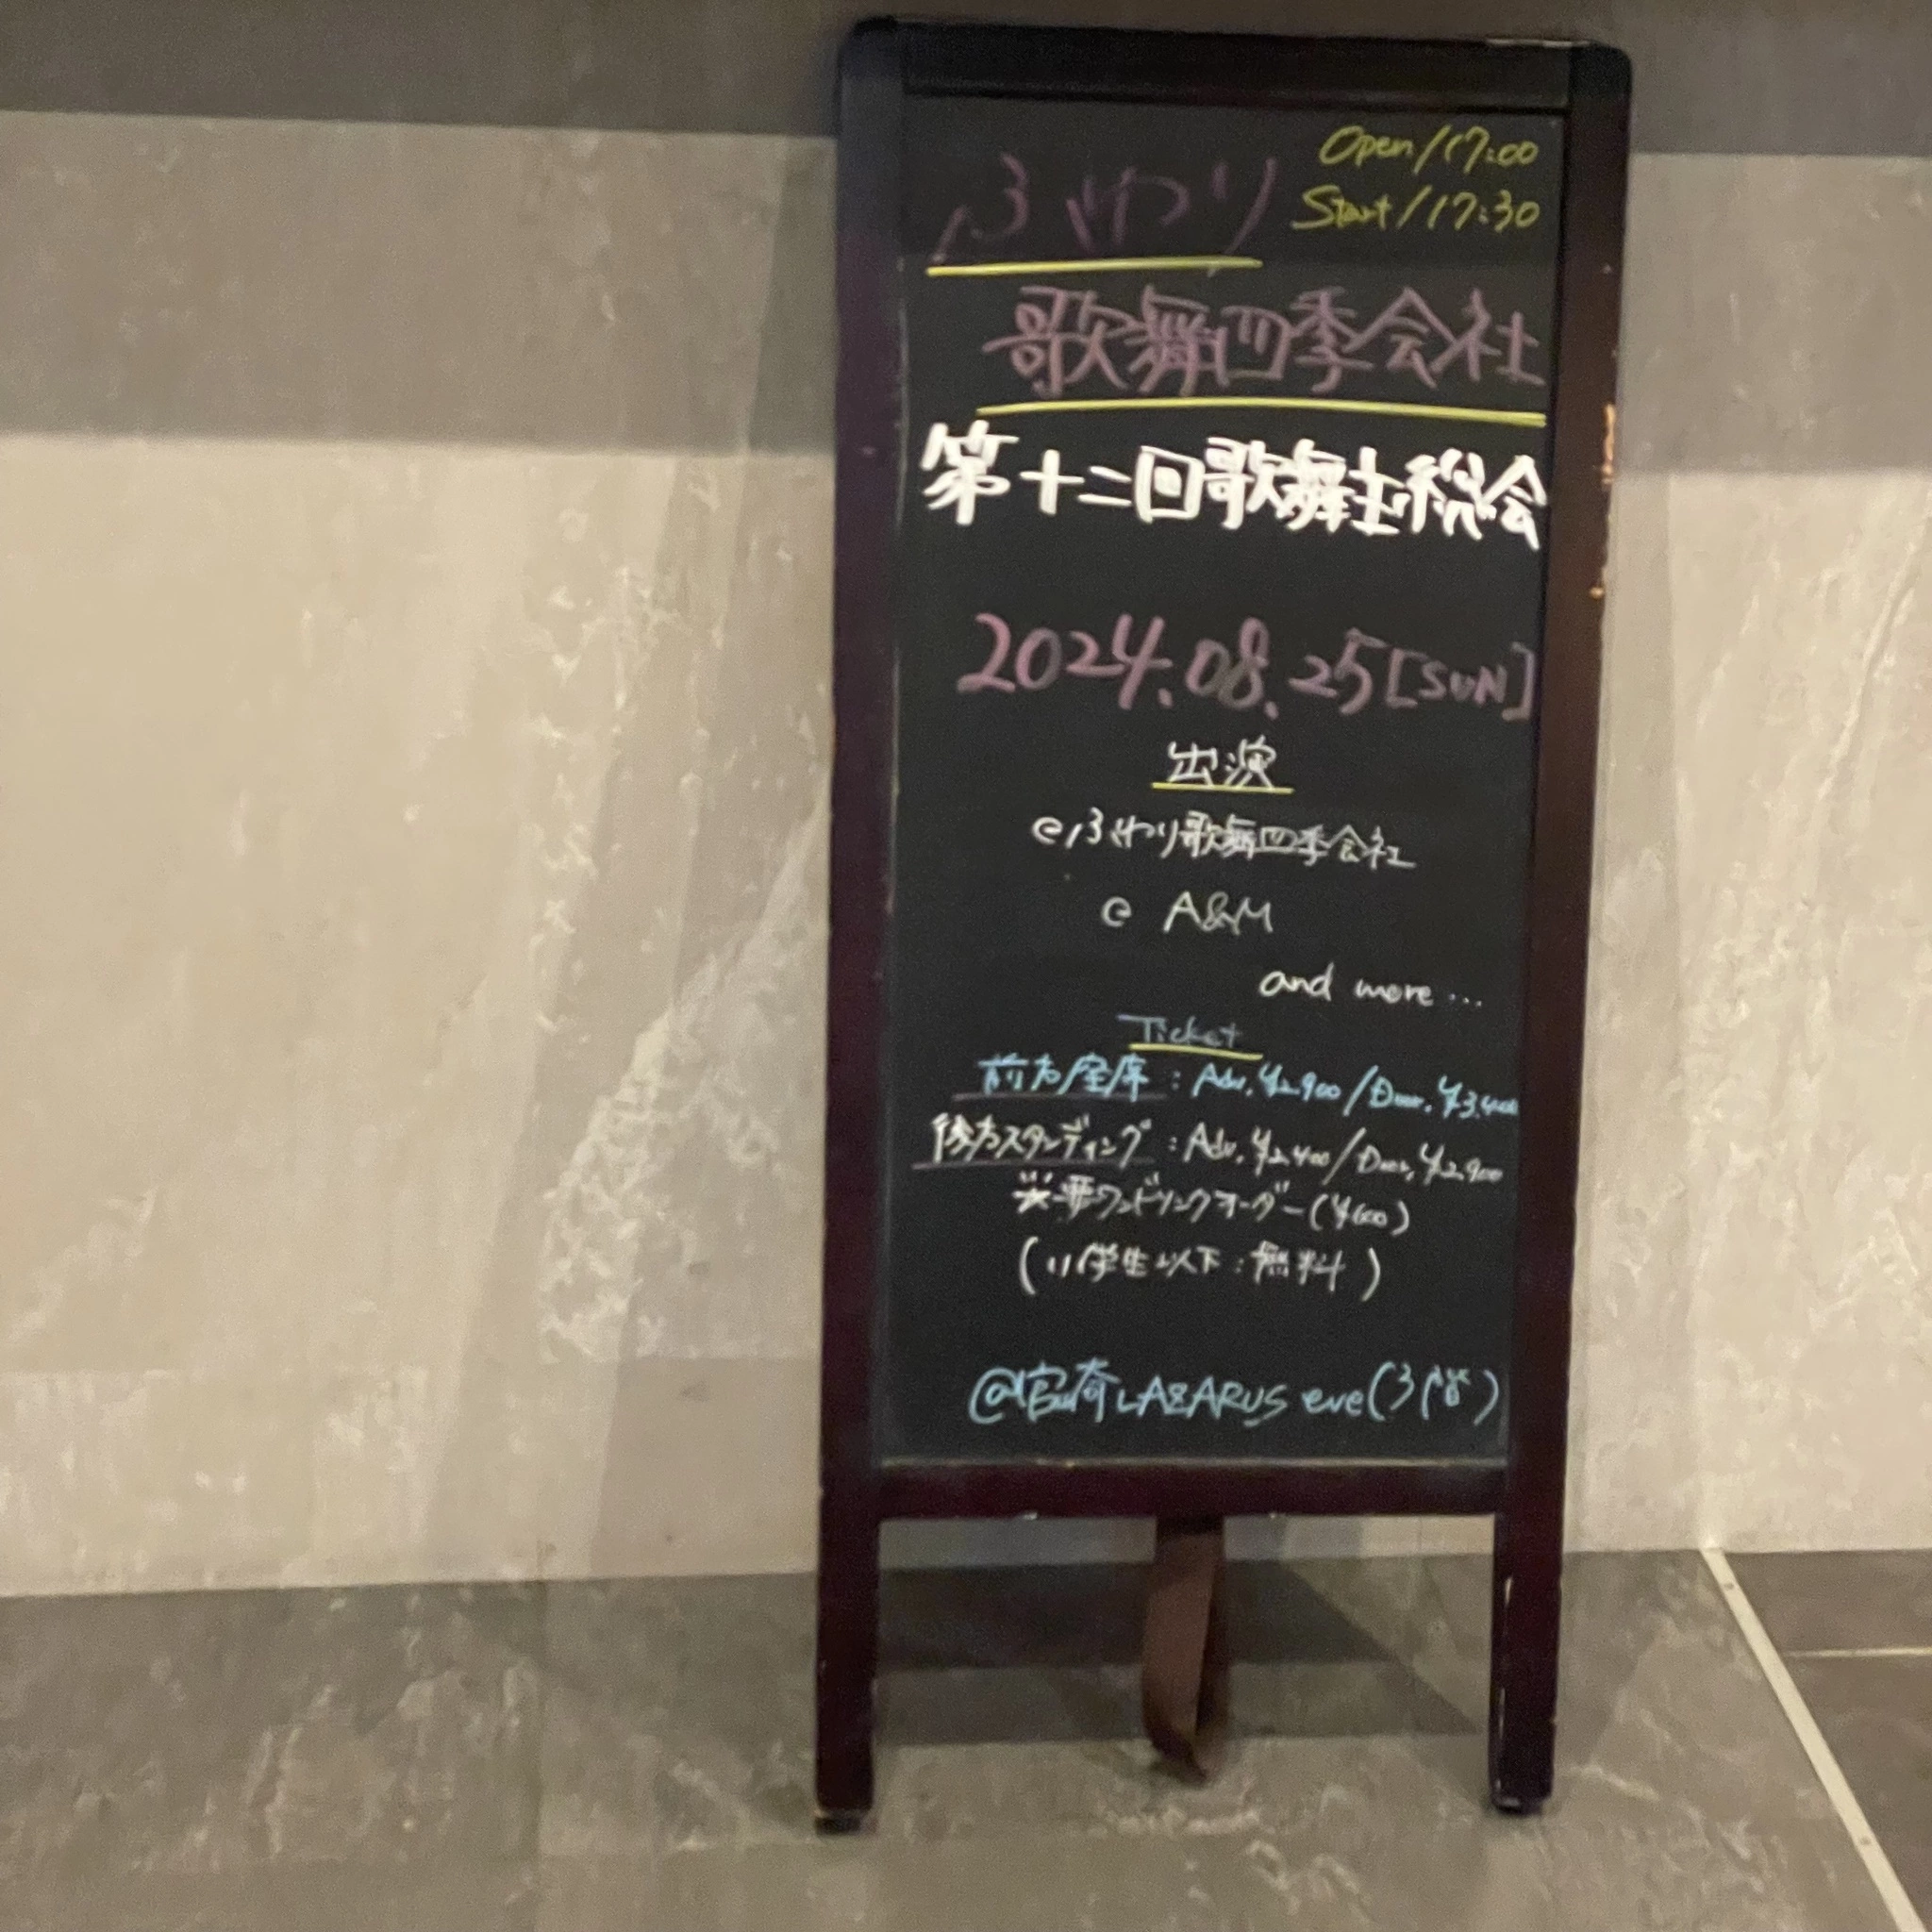 Open/17:00
Start/17:30
ふわり
歌舞四季会社
第十二回歌舞士総会
2024.08.25[SUN]
出演
ふわり歌舞四季会社
A&M
and more...
Ticket
前方座席:Adv.¥2.900/Door.¥3.400
後方スタンディング:Adv.¥2.400/Door.¥2.900
※要ワンドリンクオーダー(¥600)
(小学生以下:無料)
@宮崎LAZARUS eve(3階)